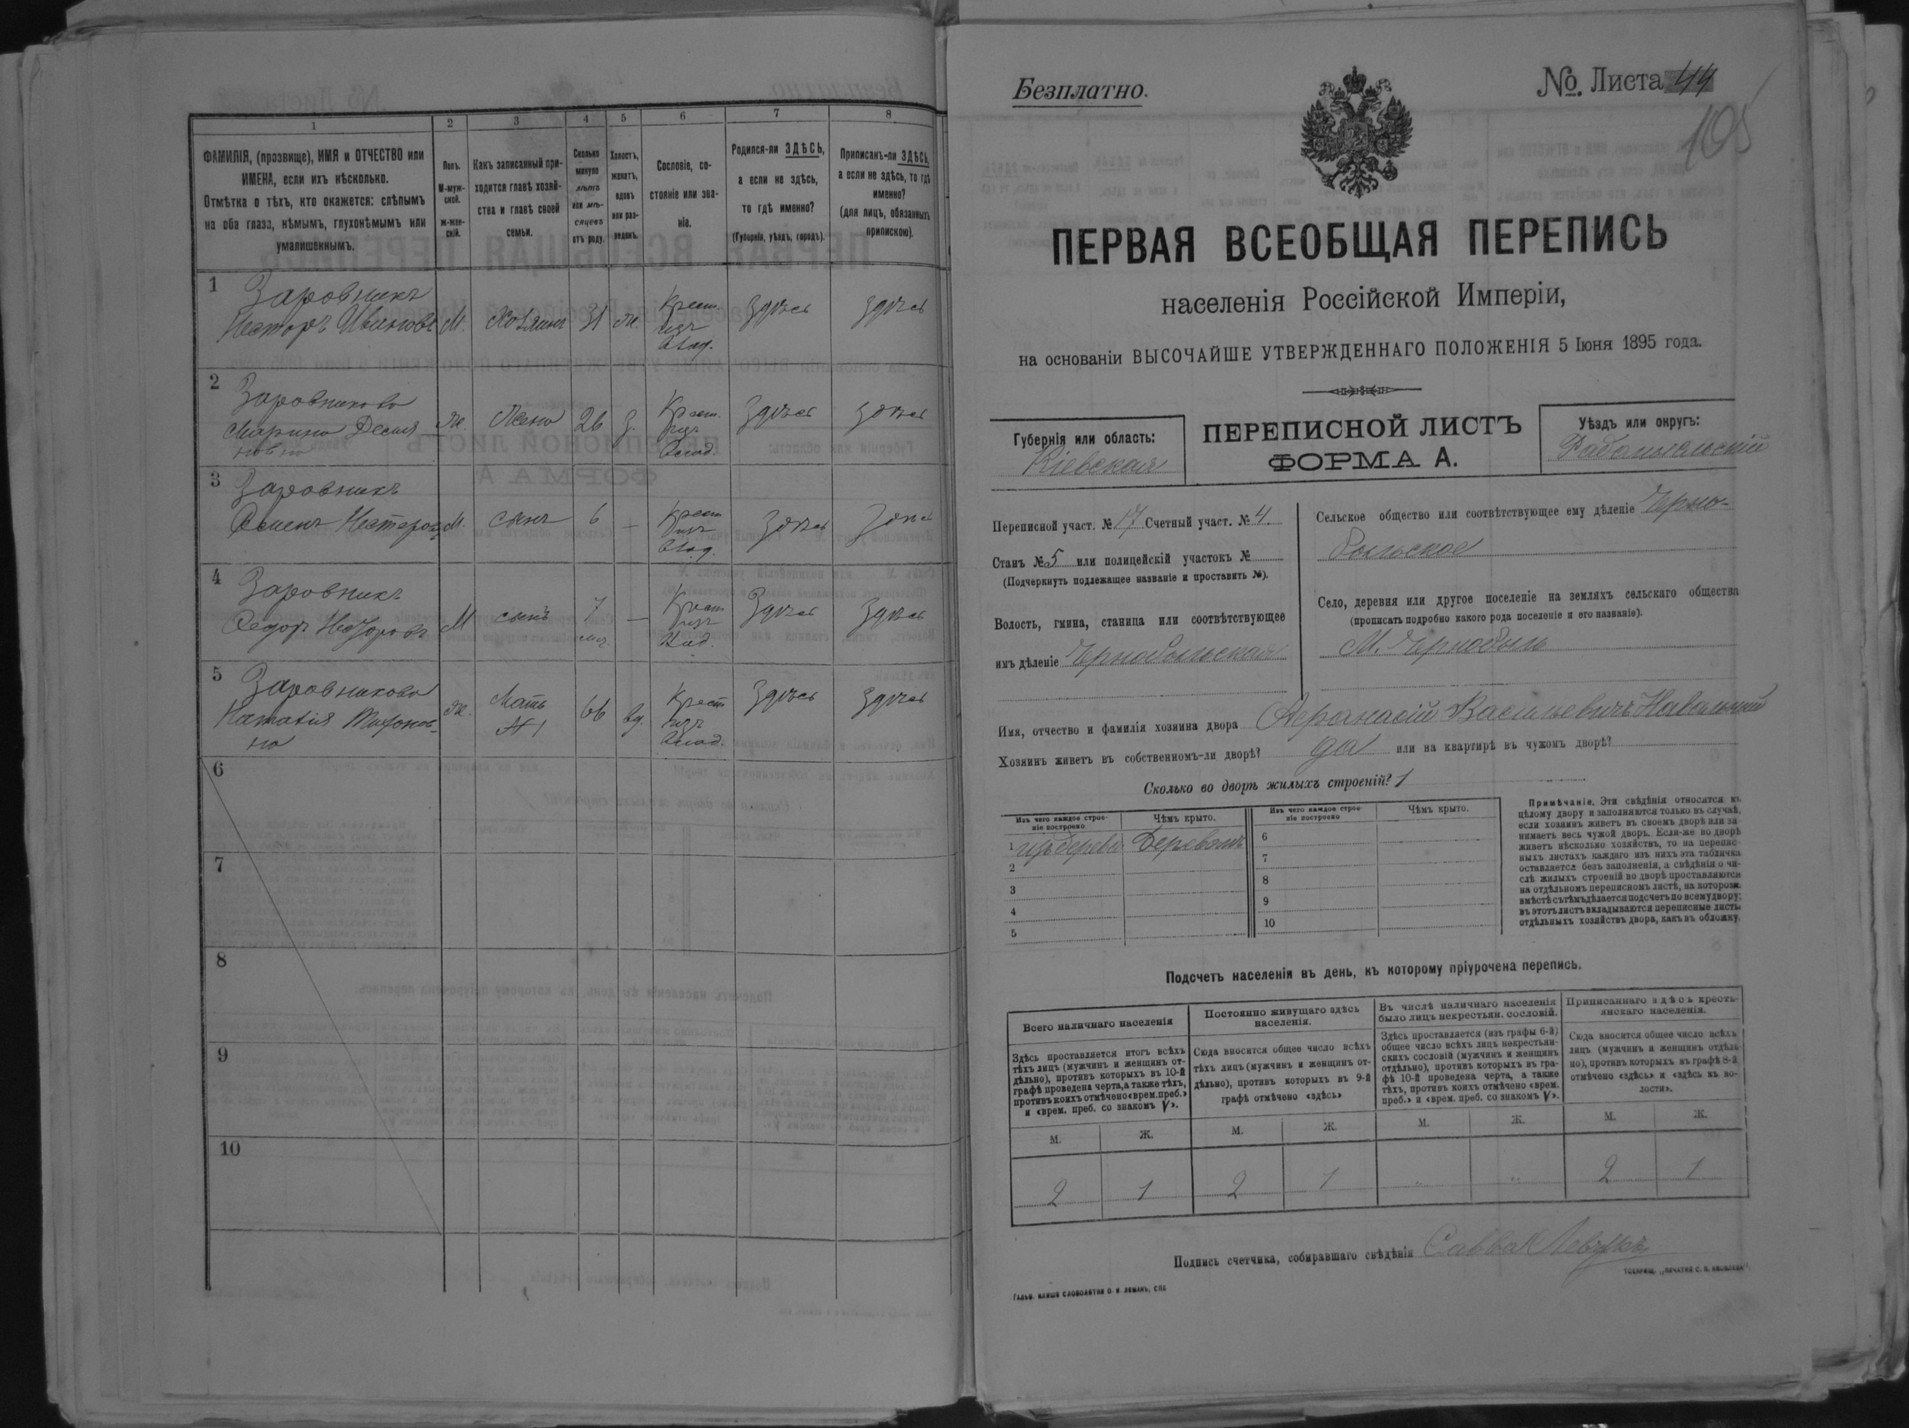 1 2 3 4 5 6 7 8
ФАМИЛІЯ, (прозвище), ИМЯ и ОТЧЕСТВО или
ИМЕНА, если ихъ нѣсколько.
Отмѣтка о тѣхъ, кто окажется: слѣпымъ
на оба глаза, нѣмымъ, глухонѣмымъ или
умалишеннымъ.
Полъ.
М-муж-
ской.
ж-жен-
скій.
Какъ записанный при-
ходится главѣ хозяй-
ства и главѣ своей
семьи.
Сколько
минуло
лѣтъ
или мѣ-
сяцевъ
отъ роду.
Холостъ,
женатъ,
вдовъ
или раз-
веденъ.
Сословіе, со-
стояніе или зва-
ніе.
Родился-ли ЗДѢСЬ,
а если не здѣсь,
то гдѣ именно?
(Губернія, уѣздъ, городъ).
Приписанъ-ли ЗДѢСЬ,
а если не здѣсь, то гдѣ
именно?
(для лицъ, обязанныхъ
припискою).
1
Заровникъ
Несторъ Иванов М. Хозяинъ 31 ж. Крест. изъ Влад. Здѣсь здѣсь
2
Заровникова
Марина М Жена 26 з. Крест. изъ Влад. Здѣсь здѣсь
3
Заровникъ
Семенъ Нестеров М. сынъ 6 — Крест. изъ Влад. Здѣсь Здѣсь
4
Заровникъ
Федоръ Несторовъ М сынъ 7 мц. — Крест. изъ Влад. Здѣсь Здѣсь
5
Заровникова
Наталія ж. Мать №1 66 вд. Крест. изъ Влад. Здѣсь здѣсь
6
7
8
9
10
Безплатно.
№ Листа 44
105
ПЕРВАЯ ВСЕОБЩАЯ ПЕРЕПИСЬ
населенія Россійской Имперіи,
на основаніи ВЫСОЧАЙШЕ УТВЕРЖДЕННАГО ПОЛОЖЕНІЯ 5 Іюня 1895 года.
Губернія или область:
Кіевская
ПЕРЕПИСНОЙ ЛИСТЪ
ФОРМА А.
Уѣздъ или округъ:
Радомысльскій
Переписной участ. № 17 Счетный участ. № 4.
Станъ № 5 или полицейскій участокъ №
(Подчеркнуть подлежащее названіе и проставить №).
Волость, гмина, станица или соотвѣтствующее
имъ дѣленіе Чернобыльская
Сельское общество или соотвѣтствующее ему дѣленіе Черно-
быльское
Село, деревня или другое поселеніе на земляхъ сельскаго общества
(прописать подробно какого рода поселеніе и его названіе).
М. Чернобыль
Имя, отчество и фамилія хозяина двора Афанасій Васильевичъ
Хозяинъ живетъ въ собственномъ-ли дворѣ? да или на квартирѣ въ чужомъ дворѣ?
Сколько во дворѣ жилыхъ строеній? 1
Изъ чего каждое строе-
ніе построено.
Чѣмъ крыто.
Изъ чего каждое строе-
ніе построено
Чѣмъ крыто.
1 изъ дерева Деревомъ 6
2 7
3 8
4 9
5 10
Примѣчаніе. Эти свѣдѣнія относятся къ
цѣлому двору и заполняются только въ случаѣ,
если хозяинъ живетъ въ своемъ дворѣ или за-
нимаетъ весь чужой дворъ. Если-же во дворѣ
живетъ нѣсколько хозяйствъ, то на перепис-
ныхъ листахъ каждаго изъ нихъ эта табличка
оставляется безъ заполненія, а свѣдѣнія о чи-
слѣ жилыхъ строеній во дворѣ проставляются
на отдѣльномъ переписномъ листѣ, на которомъ
вмѣстѣ съ тѣмъ дѣлается подсчетъ по всему двору;
въ этотъ листъ вкладываются переписные листы
отдѣльныхъ хозяйствъ двора, какъ въ обложку.
Подсчетъ населенія въ день, къ которому пріурочена перепись.
Всего наличнаго населенія
Здѣсь проставляется итогъ всѣхъ
тѣхъ лицъ (мужчинъ и женщинъ от-
дѣльно), противъ которыхъ въ 10-й
графѣ проведена черта, а также тѣхъ,
противъ коихъ отмѣчено «врем. преб.»
и «врем. преб. со знакомъ V».
Постоянно живущаго здѣсь
населенія.
Сюда вносится общее число всѣхъ
тѣхъ лицъ (мужчинъ и женщинъ от-
дѣльно), противъ которыхъ въ 9-й
графѣ отмѣчено «здѣсь»
Въ числѣ наличнаго населенія
было лицъ некрестьян. сословій.
Здѣсь проставляется (изъ графы 6-й)
общее число всѣхъ лицъ некрестьян-
скихъ сословій (мужчинъ и женщинъ
отдѣльно), противъ которыхъ въ гра-
фѣ 10-й проведена черта, а также
тѣхъ, противъ коихъ отмѣчено «врем.
преб.» и «врем. преб. со знакомъ V».
Приписаннаго здѣсь кресть-
янскаго населенія.
Сюда вносится общее число всѣхъ
лицъ (мужчинъ и женщинъ отдѣль-
но), противъ которыхъ въ графѣ 8-й
отмѣчено «здѣсь» и «здѣсь въ во-
лости».
М. Ж. М. Ж. М. Ж. М. Ж.
2 1 2 1 „ „ 2 1
Подпись счетчика, собиравшаго свѣдѣнія Савва